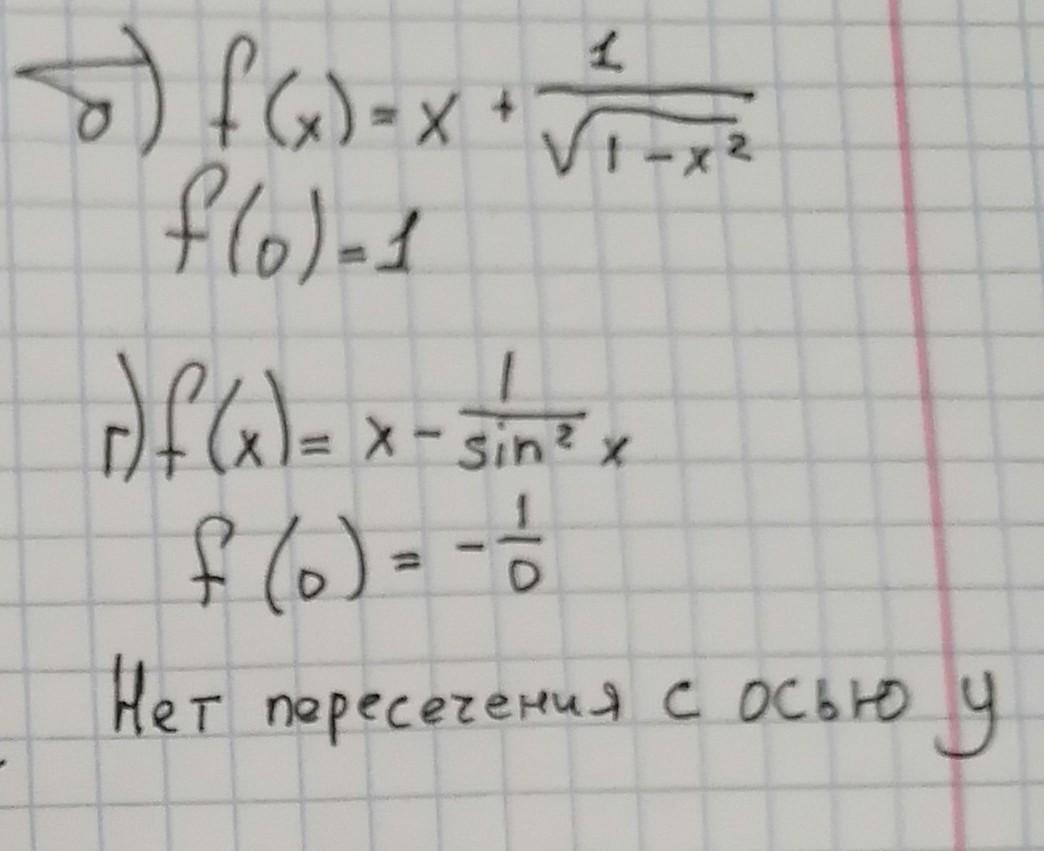 б) f(x) = x + 1/√(1-x²)
f(0) = 1
г) f(x) = x - 1/sin² x
f(0) = - 1/0
Нет пересечения с осью y